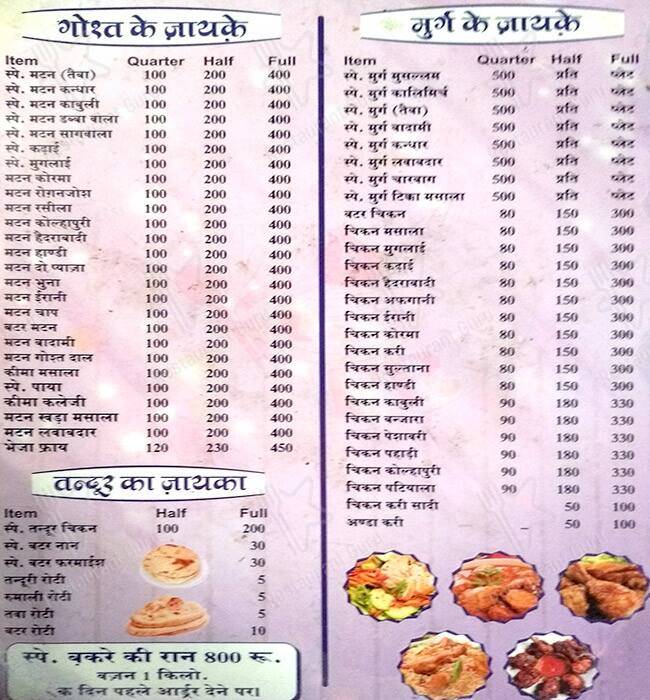 गोश्त के ज़ायके़
Item Quarter Half Full
स्पे. मटन (तैबा) 100 200 400
स्पे. मटन कन्धार 100 200 400
स्पे. मटन काबुली 100 200 400
स्पे. मटन डब्बा वाला 100 200 400
स्पे. मटन सागवाला 100 200 400
स्पे. कढ़ाई 100 200 400
स्पे. मुगलाई 100 200 400
मटन कोरमा 100 200 400
मटन रोग़नजोश 100 200 400
मटन रसीला 100 200 400
मटन कोल्हापुरी 100 200 400
मटन हैदराबादी 100 200 400
मटन हाण्डी 100 200 400
मटन दो प्याज़ा 100 200 400
मटन भुना 100 200 400
मटन ईरानी 100 200 400
मटन चाप 100 200 400
बटर मटन 100 200 400
मटन बादामी 100 200 400
मटन गोश्त दाल 100 200 400
कीमा मसाला 100 200 400
स्पे. पाया 100 200 400
कीमा कलेजी 100 200 400
मटन खड़ा मसाला 100 200 400
मटन लवाबदार 100 200 400
भेजा फ्राय 120 230 450
तन्दूर का ज़ायका
Item Half Full
स्पे. तन्दूर चिकन 100 200
स्पे. बटर नान 30
स्पे. बटर फरमाईश 30
तन्दूरी रोटी 5
रुमाली रोटी 5
तवा रोटी 5
बटर रोटी 10
स्पे. बकरे की रान 800 रू.
वज़न 1 किलो.
क दिन पहले आर्डर देने पर।
मुर्ग के ज़ायके़
Item Quarter Half Full
स्पे. मुर्ग मुसल्लम 500 प्रति प्लेट
स्पे. मुर्ग कालिमिर्च 500 प्रति प्लेट
स्पे. मुर्ग (तैबा) 500 प्रति प्लेट
स्पे. मुर्ग बादामी 500 प्रति प्लेट
स्पे. मुर्ग कन्धार 500 प्रति प्लेट
स्पे. मुर्ग लवाबदार 500 प्रति प्लेट
स्पे. मुर्ग चारबाग 500 प्रति प्लेट
स्पे. मुर्ग टिका मसाला 500 प्रति प्लेट
बटर चिकन 80 150 300
चिकन मसाला 80 150 300
चिकन मुगलाई 80 150 300
चिकन कढ़ाई 80 150 300
चिकन हैदराबादी 80 150 300
चिकन अफगानी 80 150 300
चिकन ईरानी 80 150 300
चिकन कोरमा 80 150 300
चिकन करी 80 150 300
चिकन सुल्ताना 80 150 300
चिकन हाण्डी 80 150 300
चिकन काबुली 90 180 330
चिकन बन्जारा 90 180 330
चिकन पेशावरी 90 180 330
चिकन पहाड़ी 90 180 330
चिकन कोल्हापुरी 90 180 330
चिकन पटियाला 90 180 330
चिकन करी सादी 50 100
अण्डा करी – 50 100